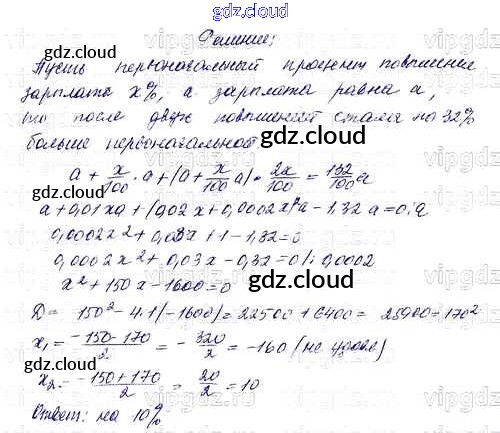 gdz.cloud
Решение:
gdz.cloud
Пусть первоначальный процент повышения
зарплаты x%, а зарплата равна a,
то после двух повышений стала на 32%
больше первоначальной
gdz.cloud
a + x/100 · a + (a + x/100 a) · 2x/100 = 132/100 a
gdz.cloud
a + 0,01xa + (0,02x + 0,0002x²)a - 1,32a = 0 /: a
0,0002x² + 0,03x + 1 - 1,32 = 0
gdz.cloud
0,0002x² + 0,03x - 0,32 = 0 /: 0,0002
x² + 150x - 1600 = 0
gdz.cloud
D = 150² - 4·1·(-1600) = 22500 + 6400 = 28900 = 170²
x₁ = (-150-170)/2 = -320/2 = -160 (не удовл)
gdz.cloud
x₂ = (-150+170)/2 = 20/2 = 10
gdz.cloud
Ответ: на 10%